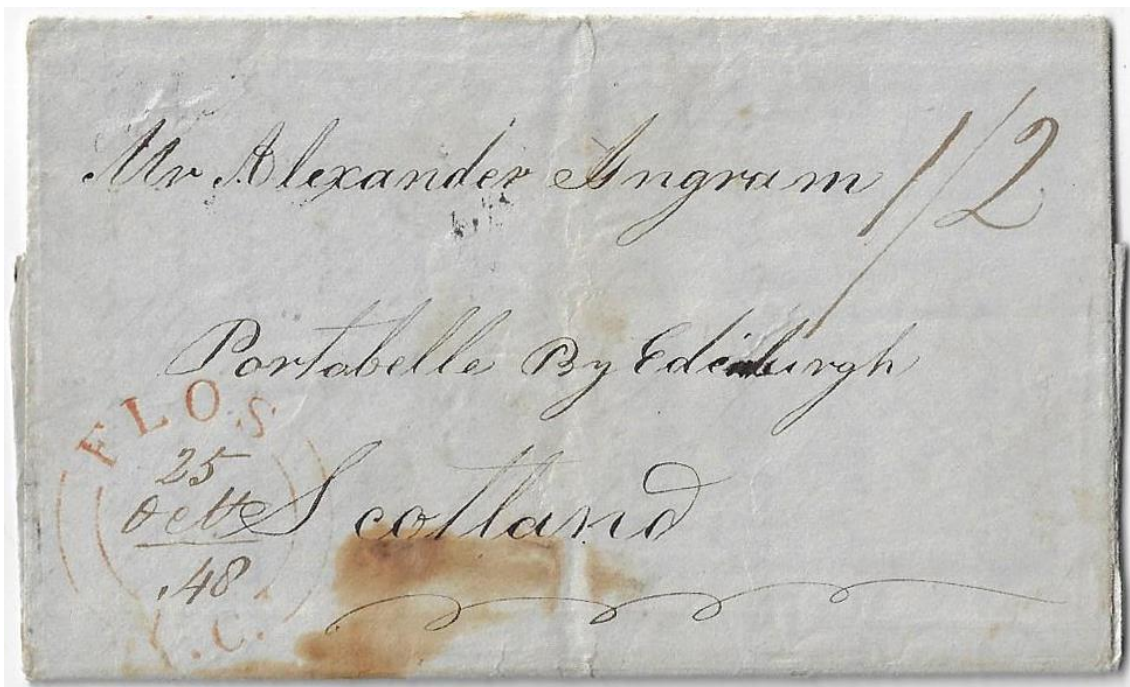 Mr Alexander Ingram 1/2
Portabelle By Edinburgh
Scotland
FLOS
25
Octr
48
.C.